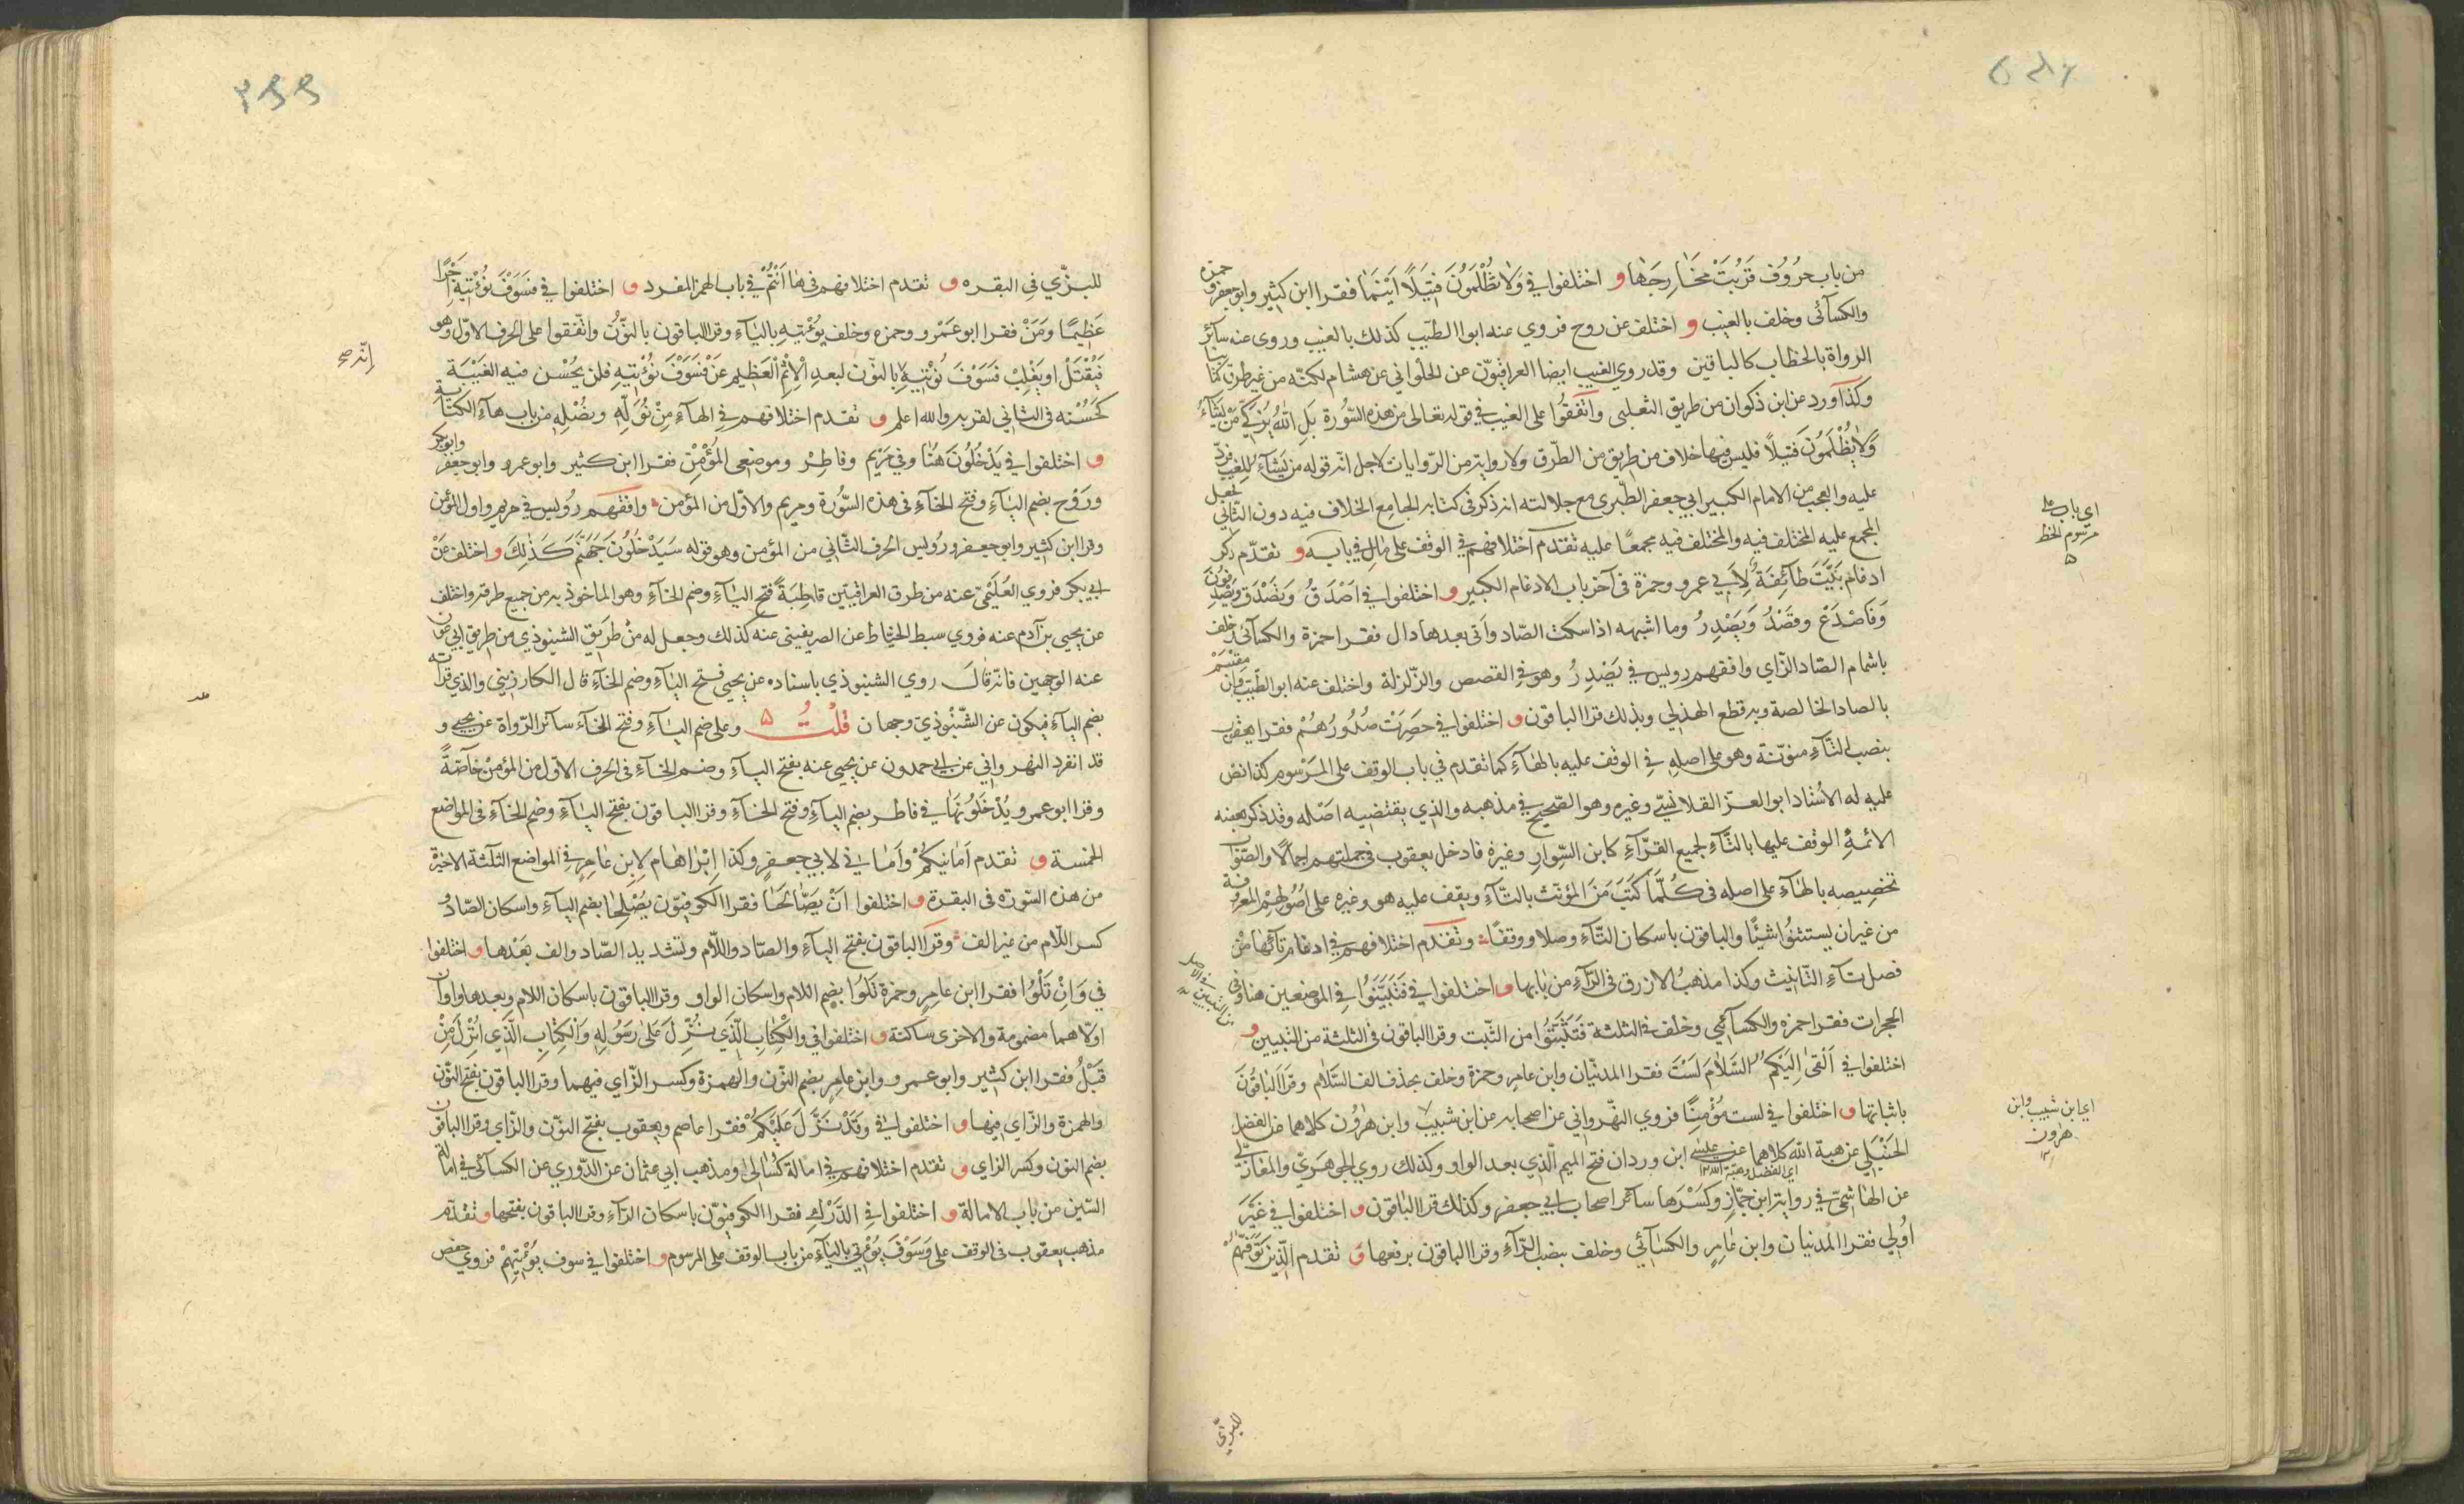 من باب حروف قربت مخارجها و اختلفوا في ولا تظلمون فتيلا اينما فقرا ابن كثير وابو جعفر وحمزة
والكسآئى وخلف بالغيب و اختلف عن روح فروي عنه ابوا الطيب كذلك بالغيب وروى عنه سآئر
الرواة بالخطاب كالباقين وقد روي الغيب ايضا العراقيون عن الحلواني عن هشام لكنه من غير طرق كتابنا
وكذا ورد عن ابن ذكوان من طريق الثعلبى واتفقوا على الغيب في قوله تعالى من هذه السورة بل الله يزكي من يشآء
ولا يظلمون فتيلا فليس فيها خلاف من طريق من الطرق ولا رواية من الروايات لاجل ان قوله من يشآء للغيب فرد
عليه والعجب من الامام الكبير ابي جعفر الطبرى مع جلالته انه ذكر فى كتابه الجامع الخلاف فيه دون الثاني فجعل
المجمع عليه المختلف فيه والمختلف فيه مجمعا عليه تقدم اختلافهم في الوقف على مال في بابه و تقدم ذكر
ادغام بيت طآئفة لابي عمرو وحمزة فى آخر باب الادغام الكبير و اختلفوا في اصدق وتصديق ويصدفون
وفاصدع وقصد ويصدر وما اشبهه اذا سكنت الصاد واتى بعدها دال فقرا حمزة والكسآئى وخلف
باشمام الصاد الزاي وافقهم رويس في يصدر وهو في القصص والزلزلة واختلف عنه ابو الطيب وابن مقسم
بالصاد الخالصة وبه قطع الهذلي وبذلك قرا الباقون و اختلفوا في حصرت صدورهم فقرا يعقوب
بنصب التآء منونة وهو على اصله في الوقف عليه بالهآء كما تقدم في باب الوقف على المرسوم كذا نص
عليه له الاستاد ابو العز القلانسي وغيره وهو الصحيح في مذهبه والذي يقتضيه اصله وقد ذكر بعضه
الائمة الوقف عليها بالتآء لجميع القرآء كابن السوار وغيره فادخل يعقوب فى جملتهم اجمالا والصواب
تخصيصه بالهآء على اصله فى كلما كتب من المؤنث بالتآء ويقف عليه هو وغيره على اصولهم المعروفة
من غير ان يستثنوا شيئا والباقون باسكان التآء وصلا ووقفا وتقدم اختلافهم في ادغام تآئها من
فصل تآء التانيث وكذا مذهب الازرق فى الرآء من بابها و اختلفوا في فتبينوا في الموضعين هنا وفى
الحجرات فقرا حمزه والكسآئي وخلف فى الثلثة فتثبتوا من الثبت وقرا الباقون فى الثلثة من التبيين و
اختلفوا في القى اليكم السلام لست فقرا المدنيان وابن عامر وحمزة وخلف بحذف الف السلام وقرا الباقون
باثباتها و اختلفوا في لست مؤمنا فروي النهرواني عن اصحابه عن ابن شبيب وابن هرون كلاهما عن الفضل
الحنبلي عن هبة الله كلاهما عن عيسى ابن وردان فتح الميم الذي بعد الواو وكذلك روي الجوهري والمغازلي
اي الفضل وهبة الله ١٢
عن الهاشمي في رواية ابن جماز وكسرها سآئر اصحاب ابي جعفر وكذلك قرا الباقون و اختلفوا في غير
اولي فقرا المدنيان وابن عامر والكسآئي وخلف بنصب الرآء وقرا الباقون برفعها و تقدم الذين توفهم
اي باب على
مرسوم الخط
اي ابن شبيب وابن
هرون
١٢
للبزي
للبزي في البقره و تقدم اختلافهم في ها انتم في باب الهمز المفرد و اختلفوا في فسوف نؤتيه اجرا
عظيما ومن فقرا ابو عمرو وحمزه وخلف يؤتيه باليآء وقرا الباقون بالنون واتفقوا على الحرف الاول وهو
فيقتل او يغلب فسوف نؤتيه بالنون لبعد الاسم العظيم عن فسوف نؤتيه فلن يحسن فيه الغيبة
كحسنه فى الثاني لقربه والله اعلم و تقدم اختلافهم في الهآء من نوله ونصله من باب هآء الكناية
و اختلفوا في يدخلون هنا وفي مريم وفاطر وموضعى المؤمن فقرا ابن كثير وابو عمرو وابو جعفر وابو بكر
وروح بضم اليآء وفتح الخآء فى هذه السورة ومريم والاول من المؤمن وافقهم رويس في مريم واول المؤمن
وقرا ابن كثير وابو جعفر ورويس الحرف الثاني من المؤمن وهو قوله سيدخلون جهنم كذلك و اختلف عن
ابي بكر فروي العليمي عنه من طرق العراقيين قاطبة فتح اليآء وضم الخآء وهو الماخوذ به من جميع طرقه واختلف
عن يحيى بن آدم عنه فروي سبط الخياط عن الصريفينى عنه كذلك وجعل له من طريق الشنبوذي من طريق ابي عون
عنه الوجهين فانه قال روي الشنبوذي باسناده عن يحيى فتح اليآء وضم الخآء قال الكارزيني والذي قراته
بضم اليآء فيكون عن الشنبوذي وجهان قلت وعلى ضم اليآء وفتح الخآء سآئر الرواة عن يحيى و
قد انفرد النهرواني عن ابي حمدون عن يحيى عنه بفتح اليآء وضم الخآء فى الحرف الاول من المؤمن خآصة
وقرا ابو عمرو يدخلونها في فاطر بضم اليآء وفتح الخآء وقرا الباقون بفتح اليآء وضم الخآء فى المواضع
الخمسة و تقدم امانيكم واماني لابي جعفر وكذا ابراهام لابن عامر في المواضع الثلثة الاخيرة
من هذه السورة فى البقرة و اختلفوا ان يصالحا فقرا الكوفيون يصلحا بضم اليآء واسكان الصاد و
كسر اللام من غير الف وقرا الباقون بفتح اليآء والصاد واللام وتشديد الصاد والف بعدها و اختلفوا
في وان تلووا فقرا ابن عامر وحمزة تلوا بضم اللام واسكان الواو وقرا الباقون باسكان اللام وبعدها واوان
اولاهما مضمومة والاخرى ساكنة و اختلفوا في والكتاب الذي نزل على رسوله والكتاب الذي انزل من
قبل فقرا ابن كثير وابو عمرو وابن عامر بضم النون والهمزة وكسر الزاي فيهما وقرا الباقون بفتح النون
والهمزة والزاي فيها و اختلفوا في وقد نزل عليكم فقرا عاصم ويعقوب بفتح النون والزاي وقرا الباقون
بضم النون وكسر الزاي و تقدم اختلافهم في امالة كسالى ومذهب ابي عثمان عن الدوري عن الكسآئي في امالة
السين من باب الامالة و اختلفوا في الدرك فقرا الكوفيون باسكان الرآء وقرا الباقون بفتحها و تقدم
مذهب يعقوب فى الوقف على وسوف يؤتي باليآء من باب الوقف على المرسوم و اختلفوا في سوف يؤتيهم فروي حفص